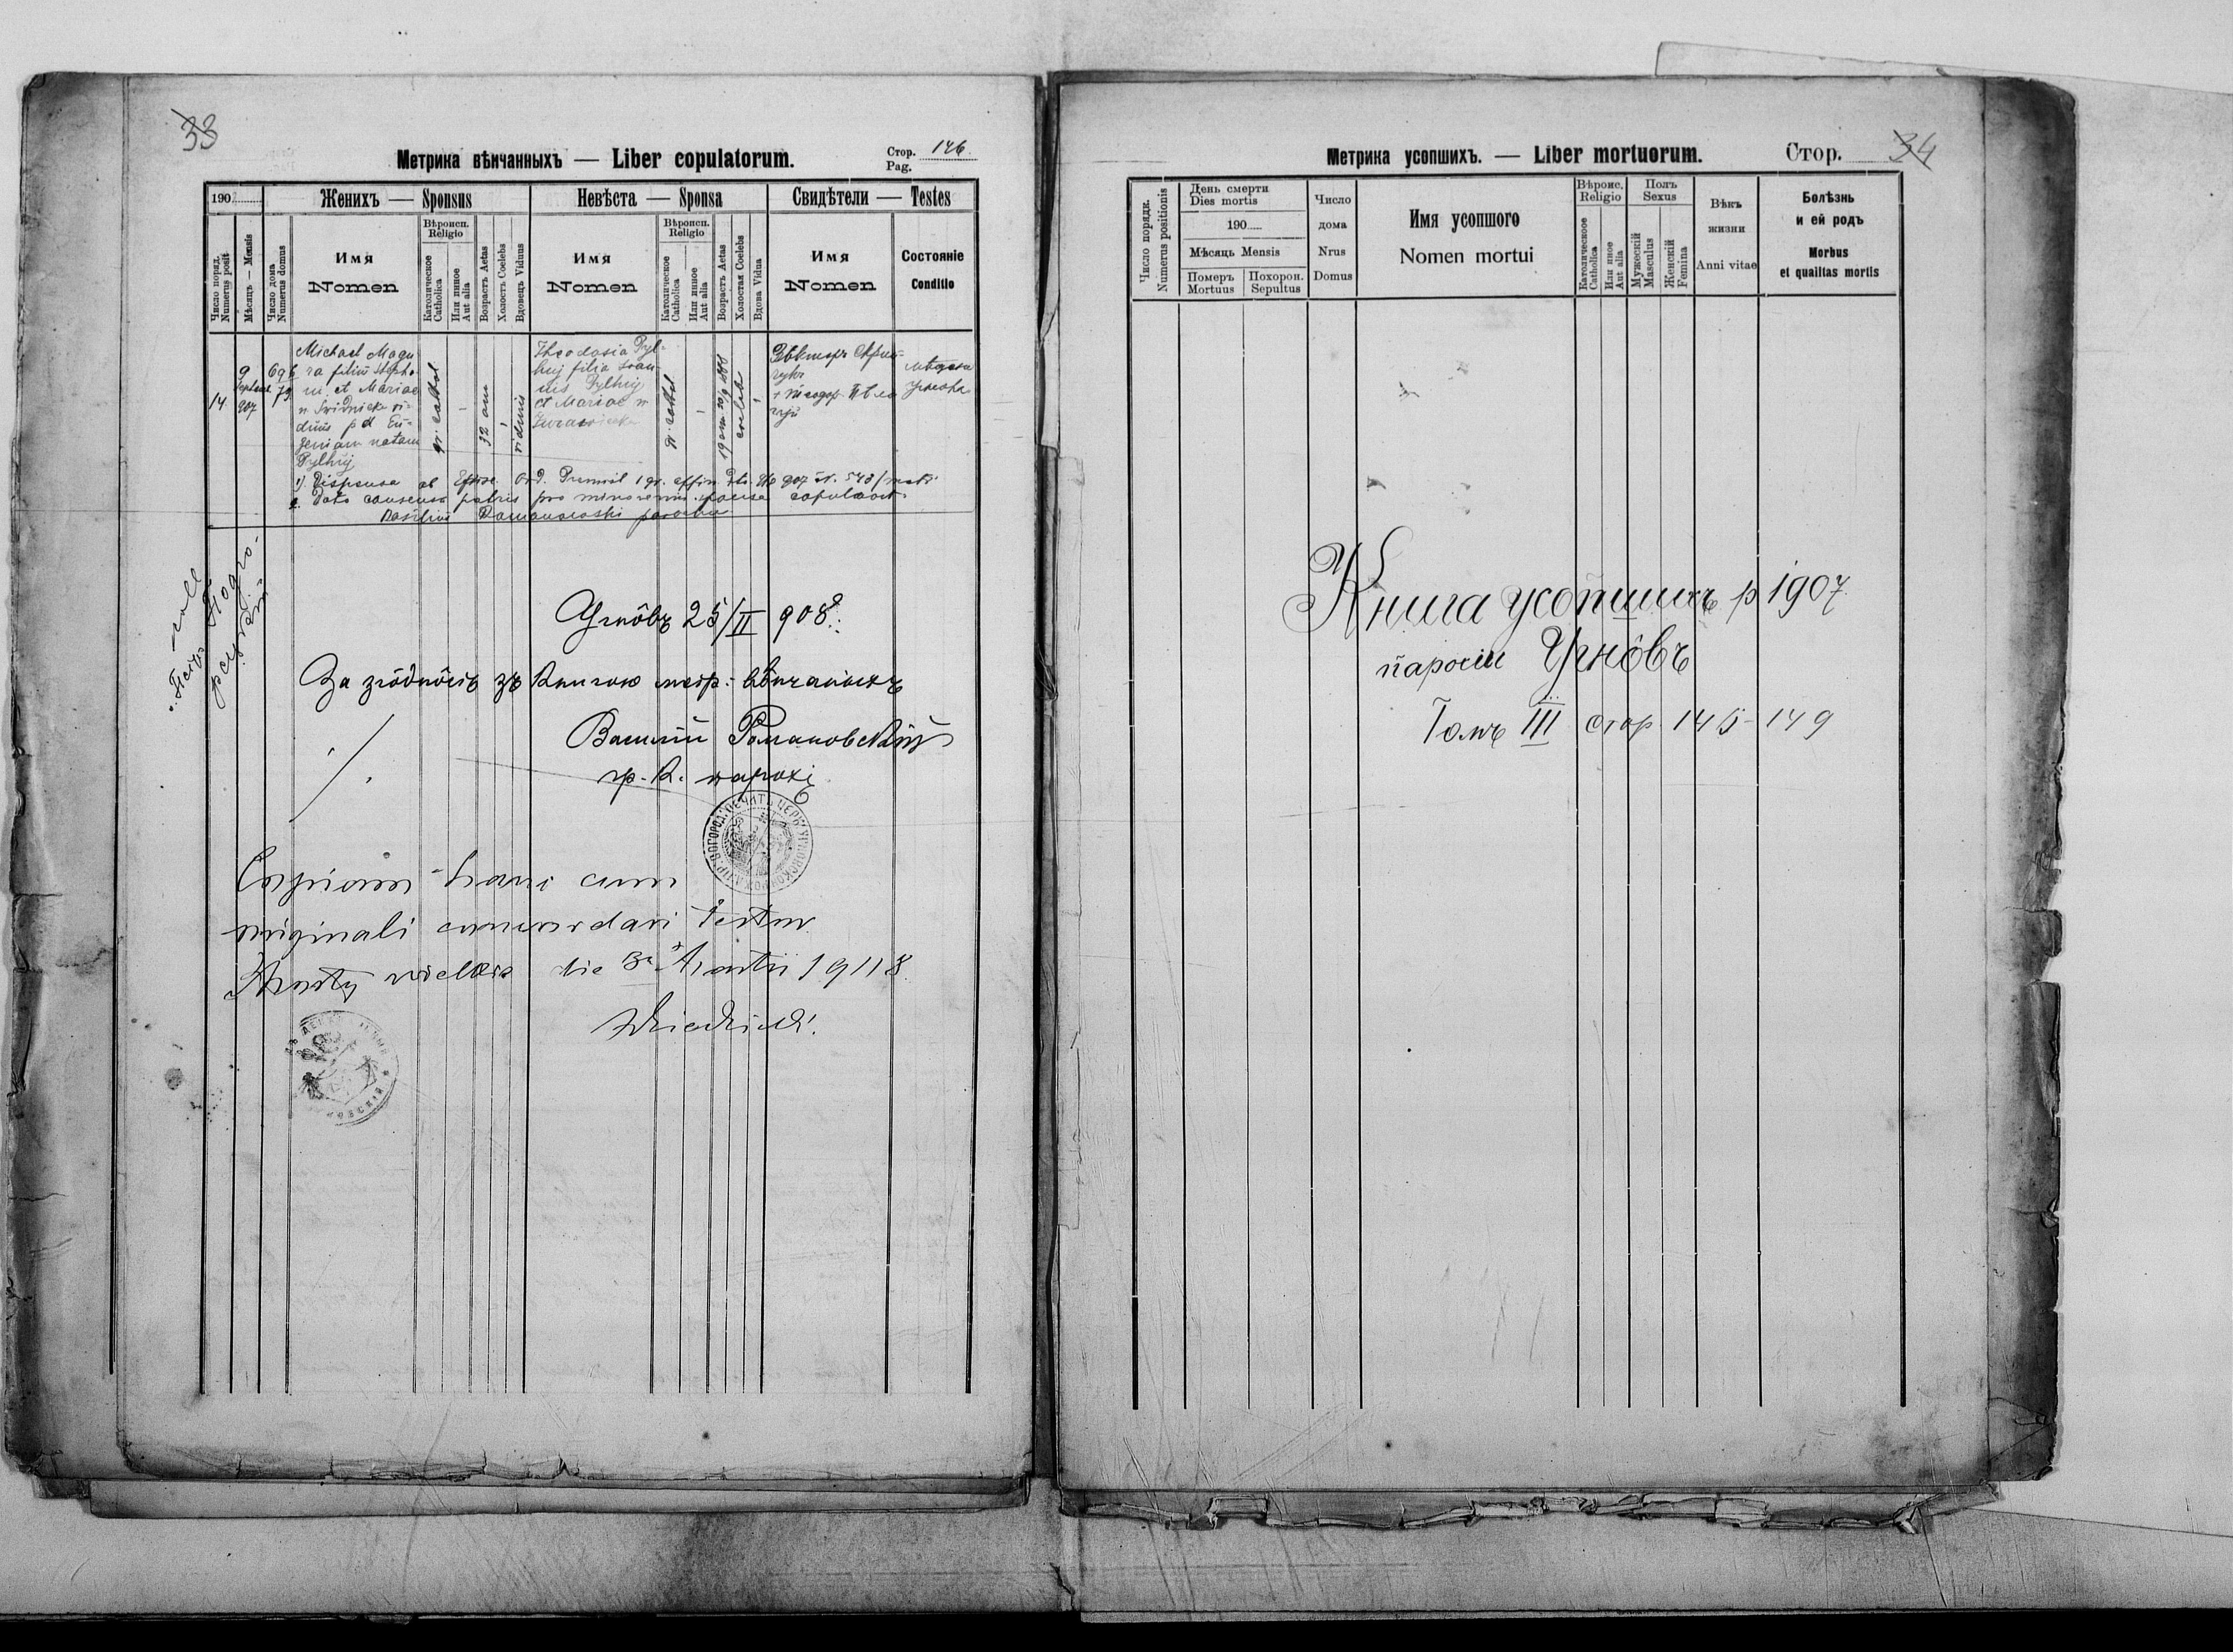 33
Метрика вѣнчанныхъ — Liber copulatorum.
Стор. 146
Pag.
190
Женихъ — Sponsus
Невѣста — Sponsa
Свидѣтели — Testes
Число поряд.
Numerus posit
Мѣсяць — Mensis
Число дома
Numerus domus
Имя
Nomen
Вѣроисп.
Religio
Католическое
Catholica
Или иное
Aut alia
Возрасть Aetas
Холость Coelebs
Вдовець Viduus
Имя
Nomen
Вѣроисп.
Religio
Католическое
Catholica
Или иное
Aut alia
Возрасть Aetas
Холостая Coelebs
Вдова Vidua
Имя
Nomen
Состояніе
Conditio
14
9
Septem
907
696
79
Michael Magu
ra filius Stepha
ni et Mariae
n Svidnicka vi
duus p d Eu-
geniam natam
Pylhuj
gr. cathol
32 ann
viduus
Theodosia Pyl-
huj filia Ioan
nis Pylhuj
et Mariae n
gr. cathol
coelebs
+ Теодор
1) Dispensa ab Episc. Ord. Premisl 1 gr. affin
2. Dato consensu patris pro minorenni sponsa copulavit
Basilius Romanowski parochus
Угнôвъ 25/II 908
За згôднôсть зъ книгою метр. вѣнчаныхъ
Василій Романовскій
гр. к. парохъ
Copiam hanc cum
originali concordari testor
die 3 Martii 1918
Метрика усопшихъ. — Liber mortuorum.
Стор. 34
Число порядк.
Numerus positionis
День смерти
Dies mortis
190
Мѣсяць Mensis
Померъ
Mortuus
Похорон.
Sepultus
Число
дома
Nrus
Domus
Имя усопшого
Nomen mortui
Вѣроис.
Religio
Католическое
Catholica
Или иное
Aut alia
Полъ
Sexus
Мужескій
Masculus
Женскій
Femina
Вѣкъ
жизни
Anni vitae
Болѣзнь
и ей родъ
Morbus
et qualitas mortis
Книга усопшихъ р 1907
парохіи Угнôвъ
Томъ III стор 145-149